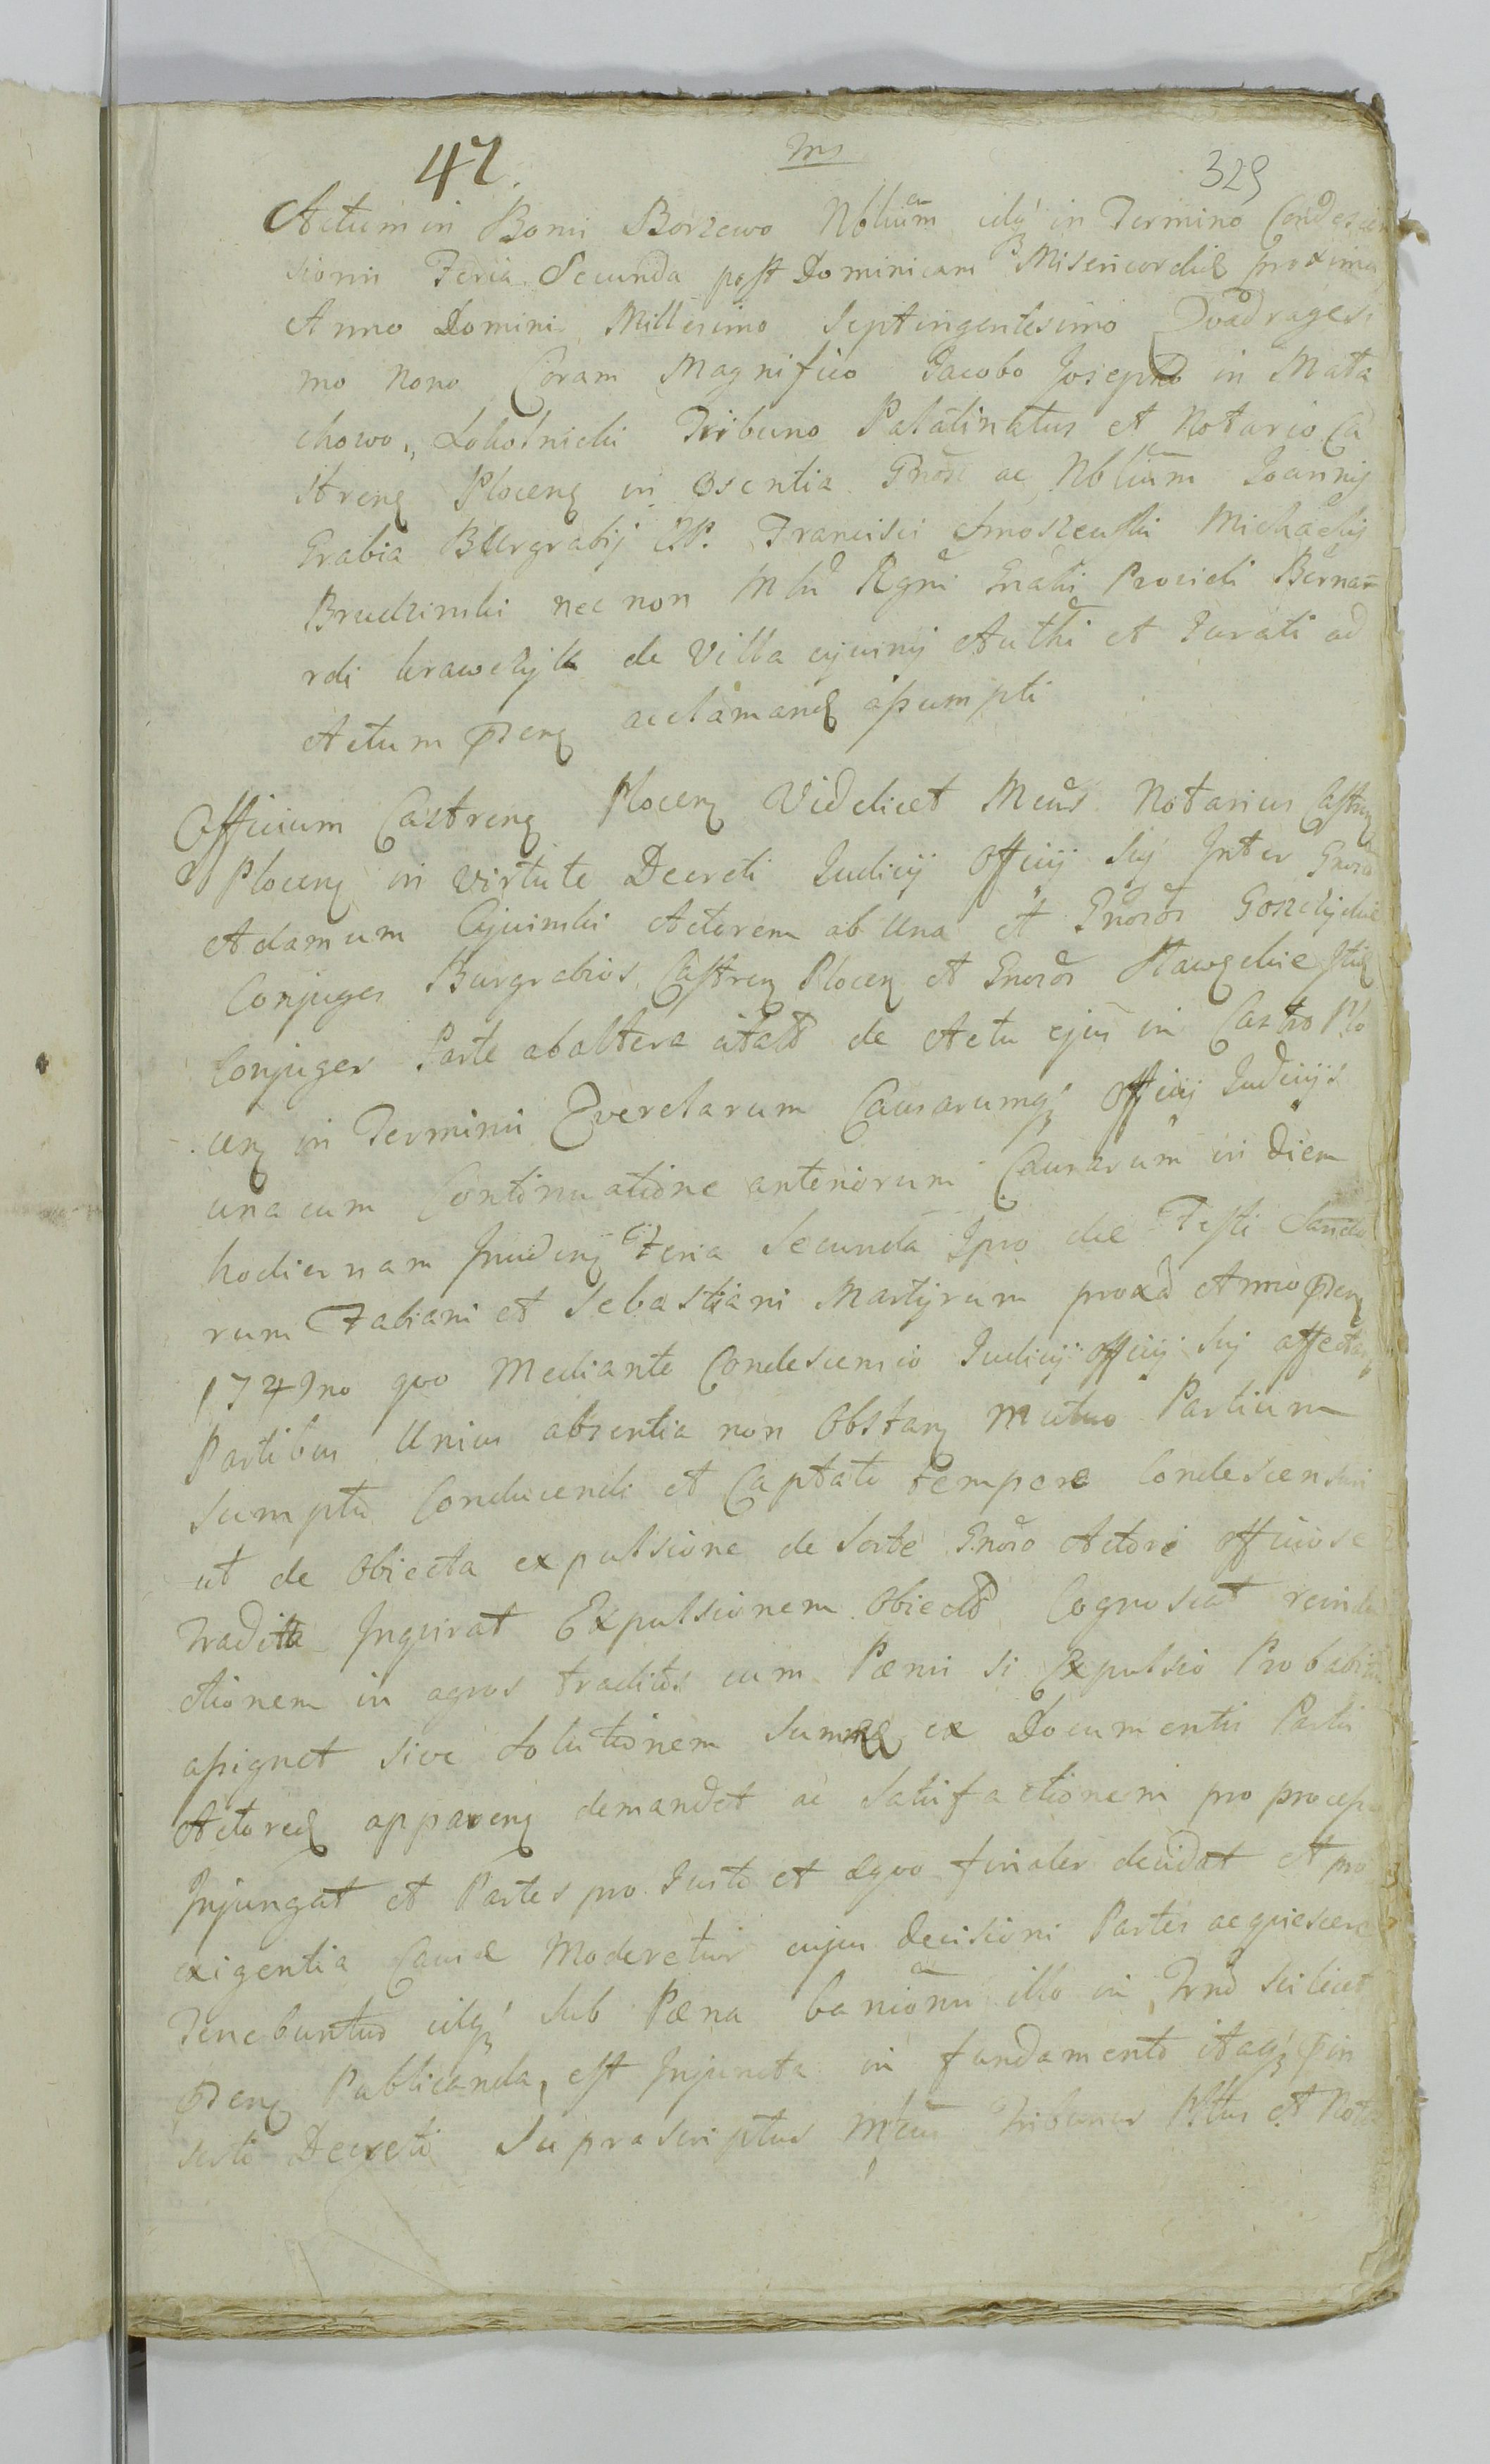 47.
329
Actum in Bonis Borzewo Nblium idq in Termino Condescen
sionis Feria Secunda post Dominicam Misericordiæ proxima
Anno Domini Millesimo Septingentesimo Qvadragesi
mo Nono Coram Magnifico Jacobo Josepho in Mata
chowo Tribuno Palatinatus et Notario Ca
streng Ploceng in Gnosi ac Nblium Joannis
Grabia Burgrabij Francisci Smoszewski Michaelis
Brudzinski nec non Rgni Gnalis Providi Bernar
rdi krawczyk de Villa Authi et Jurati ad
Actum pseng acclamang assumpti
Officium Castreng Ploceng Videlicet Mcus Notarius Castreng
Ploceng in virtute Decreti Judicij Officij Sui Inter Gnosum
Adamum Cyvinski Actorem ab Una et Gnosos
Conjuges Burgrabios Castreng Ploceng et Gnosos
Conjuges Parte ab altera citatos de Actu ejus in Castro Plo
ceng in Terminis Qverelarum Causarumq Officij Judicijs
una cum Continuatione anteriorum Causarum in diem
hodiernam Inciding Feria Secunda Ipso die Festi Sancto
rum Fabiani et Sebastiani Martyrum proxa Anno pseng
1749no quo Mediante Condescensio Judicij Officij Sui affectatis
Partibus Unius absentia non Obstang mutuo Partium
Sumptu Conducendi et Captato tempore Condescensuri
ut de Obiecta expulsione de Sorte Gnoso Actori officiose
tradita Inquirat Expulsionem Obiectam Cognoscat reindu
ctionem in agros traditos cum Pænis si Expulsio Probabitur
assignet sive Solutionem Summæ ex Documentis Partis
Actoreæ appareng demandet ac Satisfactionem pro processu
Injungat et Partes pro Justo et æquo finaliter decidat et pro
exigentia Causæ Moderetur cujus Decisioni Partes acquiescere
Tenebuntur idq Sub Pæna banionis illo in Trno scilicet
pseng Publicanda, est Injuncta in fundamento itaq prin
serti Decreti Suprascriptus Mcus Tribunus Pltus et Nota